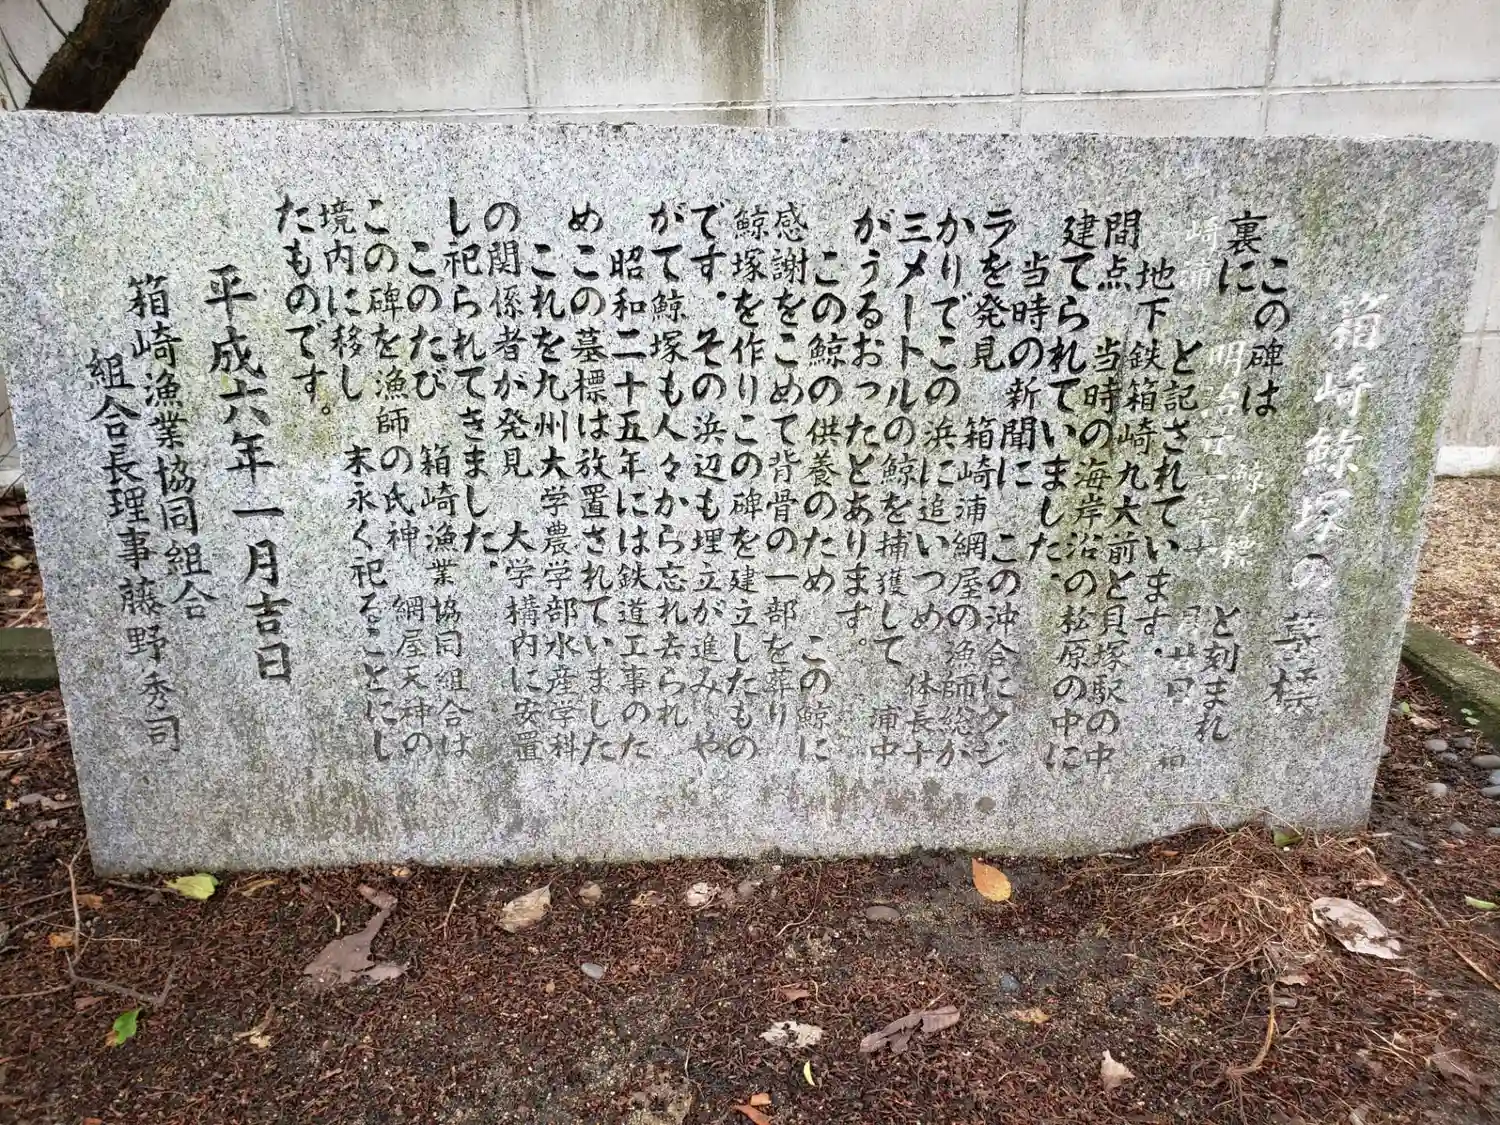 箱崎鯨塚の墓標
この碑は　鯨ノ標　と刻まれ
裏に　明治廿一年　月廿日　箱
崎浦　と記されています。
地下鉄箱崎九大前と貝塚駅の中
間点　当時の海岸沿の松原の中に
建てられていました。
当時の新聞に　この沖合にクジ
ラを発見　箱崎浦網屋の漁師総が
かりでこの浜に追いつめ　体長十
三メートルの鯨を捕獲して　浦中
がうるおったとあります。
この鯨の供養のため　この鯨に
感謝をこめて背骨の一部を葬り
鯨塚を作りこの碑を建立したもの
です。その浜辺も埋立が進み　や
がて鯨塚も人々から忘れ去られ
昭和二十五年には鉄道工事のた
めこの墓標は放置されていました
これを九州大学農学部水産学科
の関係者が発見　大学構内に安置
し祀られてきました。
このたび　箱崎漁業協同組合は
この碑を漁師の氏神　網屋天神の
境内に移し　末永く祀ることにし
たものです。
平成六年一月吉日
箱崎漁業協同組合
組合長理事　藤野秀司